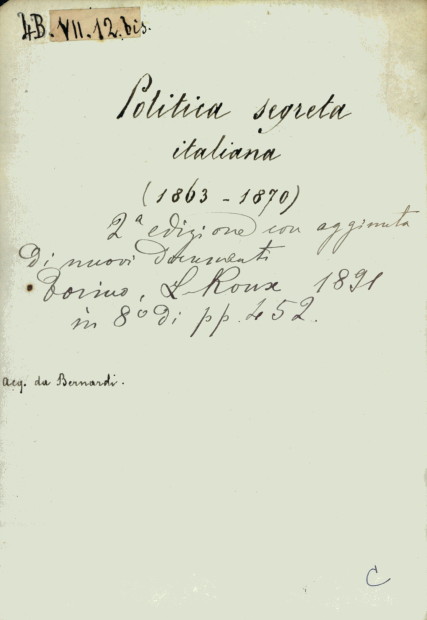 4B. VII. 12. bis.
Politica segreta
italiana
(1863 - 1870)
2ª edizione con aggiunta
di nuovi documenti
Torino, L Roux 1891
in 8º di pp. 452.
Acq. da Bernardi.
C